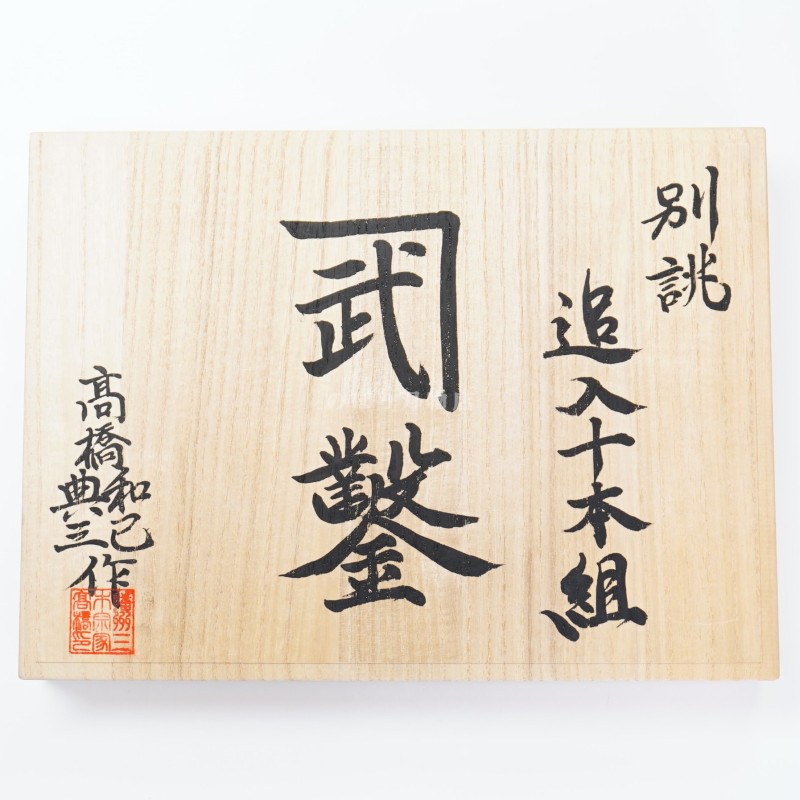 別誂
追入十本組
武
鑿
髙橋和巳
典三
作